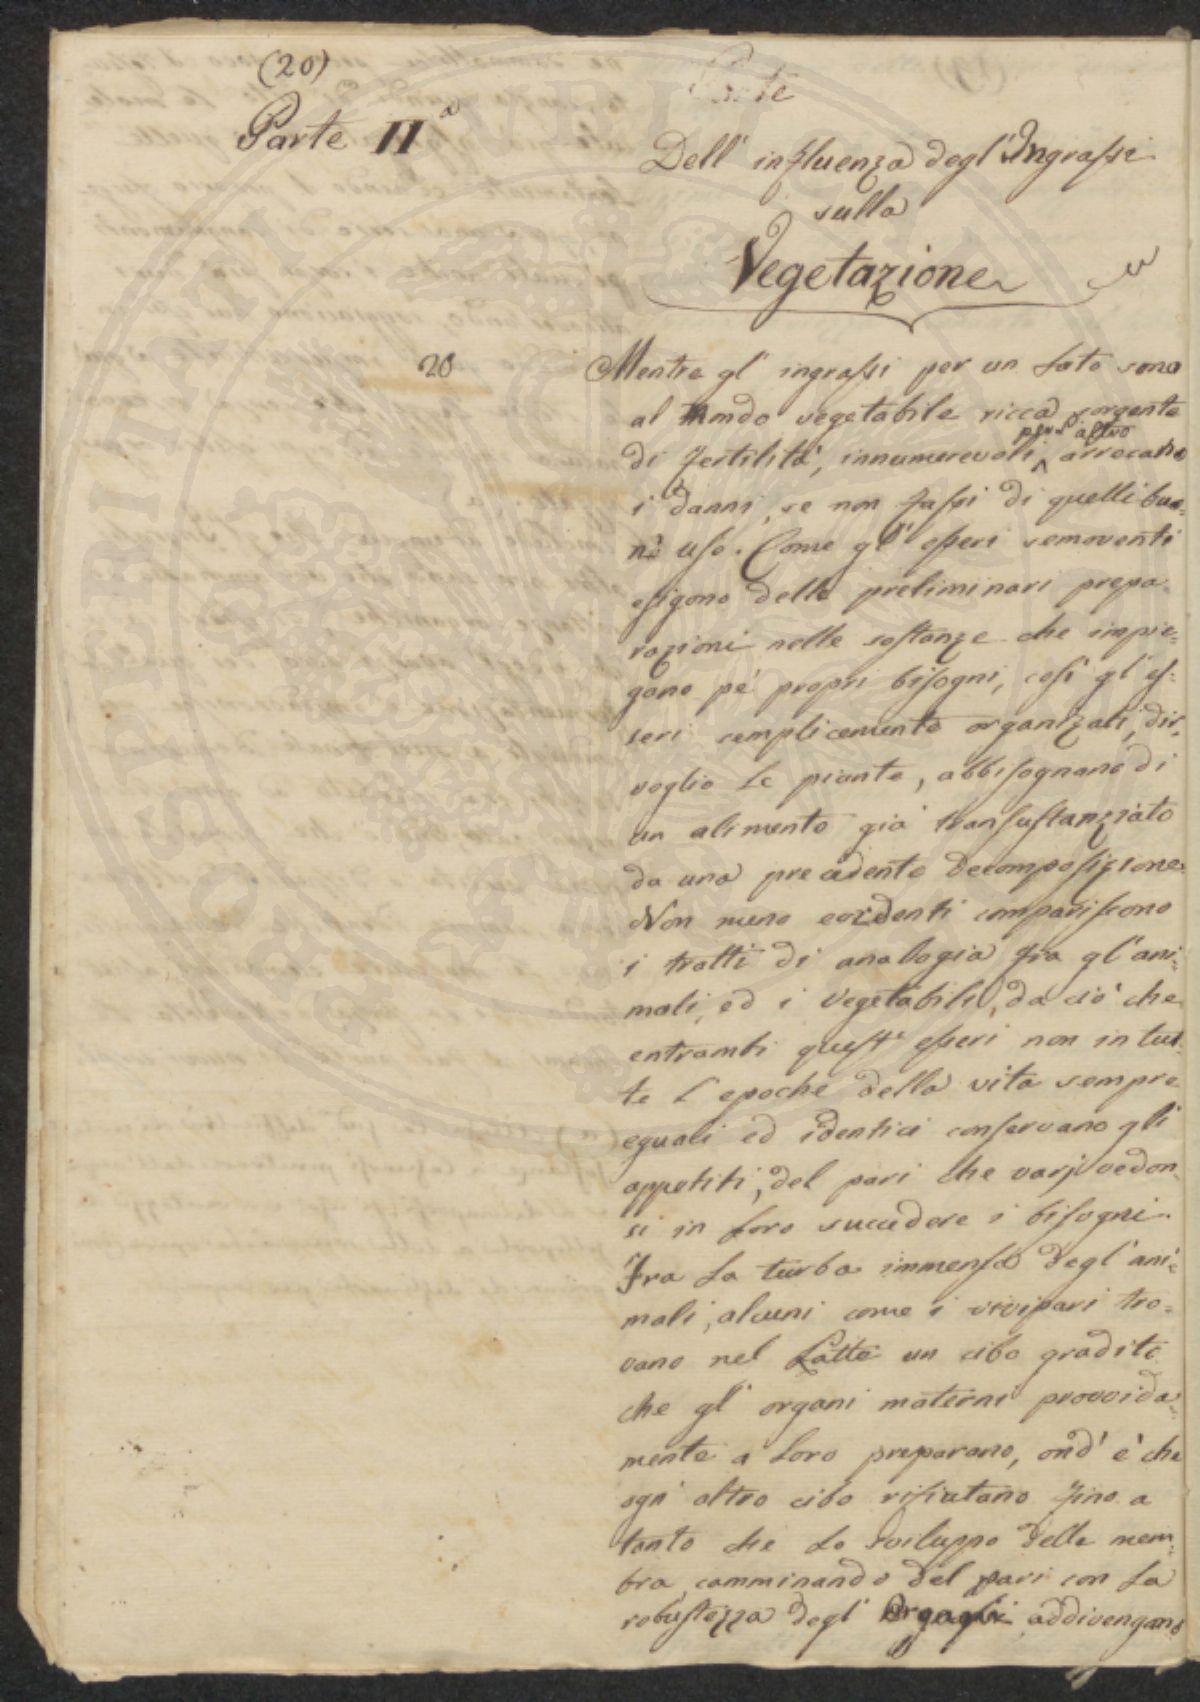 (20)
Parte IIa
Dell' influenza degl'Ingrassi
sulla
Vegetazione
20
Mentre gl' ingrassi per un lato sono
al mondo vegetabile ricca sorgente
di fertilità, innumerevoli per l' altro arrecano
i danni, se non fassi di quelli buo-
no uso. Come gl' esseri semoventi
esigono delle preliminari prepa-
razioni nelle sostanze che impie-
gano pe' propri bisogni, così gl' es-
seri semplicemente organizati, dir
voglio le piante, abbisognano di
un alimento già transustanziato
da una precedente decomposizione.
Non meno evidenti compariscono
i tratti di analogia fra gl' ani-
mali, ed i vegetabili, da ciò che
entrambi quest' esseri non in tut-
te l' epoche della vita sempre
eguali ed identici conservano gli
appetiti, del pari che varj vedon-
si in loro succedere i bisogni.
Fra la turba immensa degl' ani-
mali, alcuni come i vivipari tro-
vano nel Latte un cibo gradito
che gl' organi materni provvida-
mente a loro preparano, ond' è che
ogn' altro cibo rifiutano fino a
tanto che lo sviluppo delle mem-
bra camminando del pari con la
robustezza degl' Organi addivengano